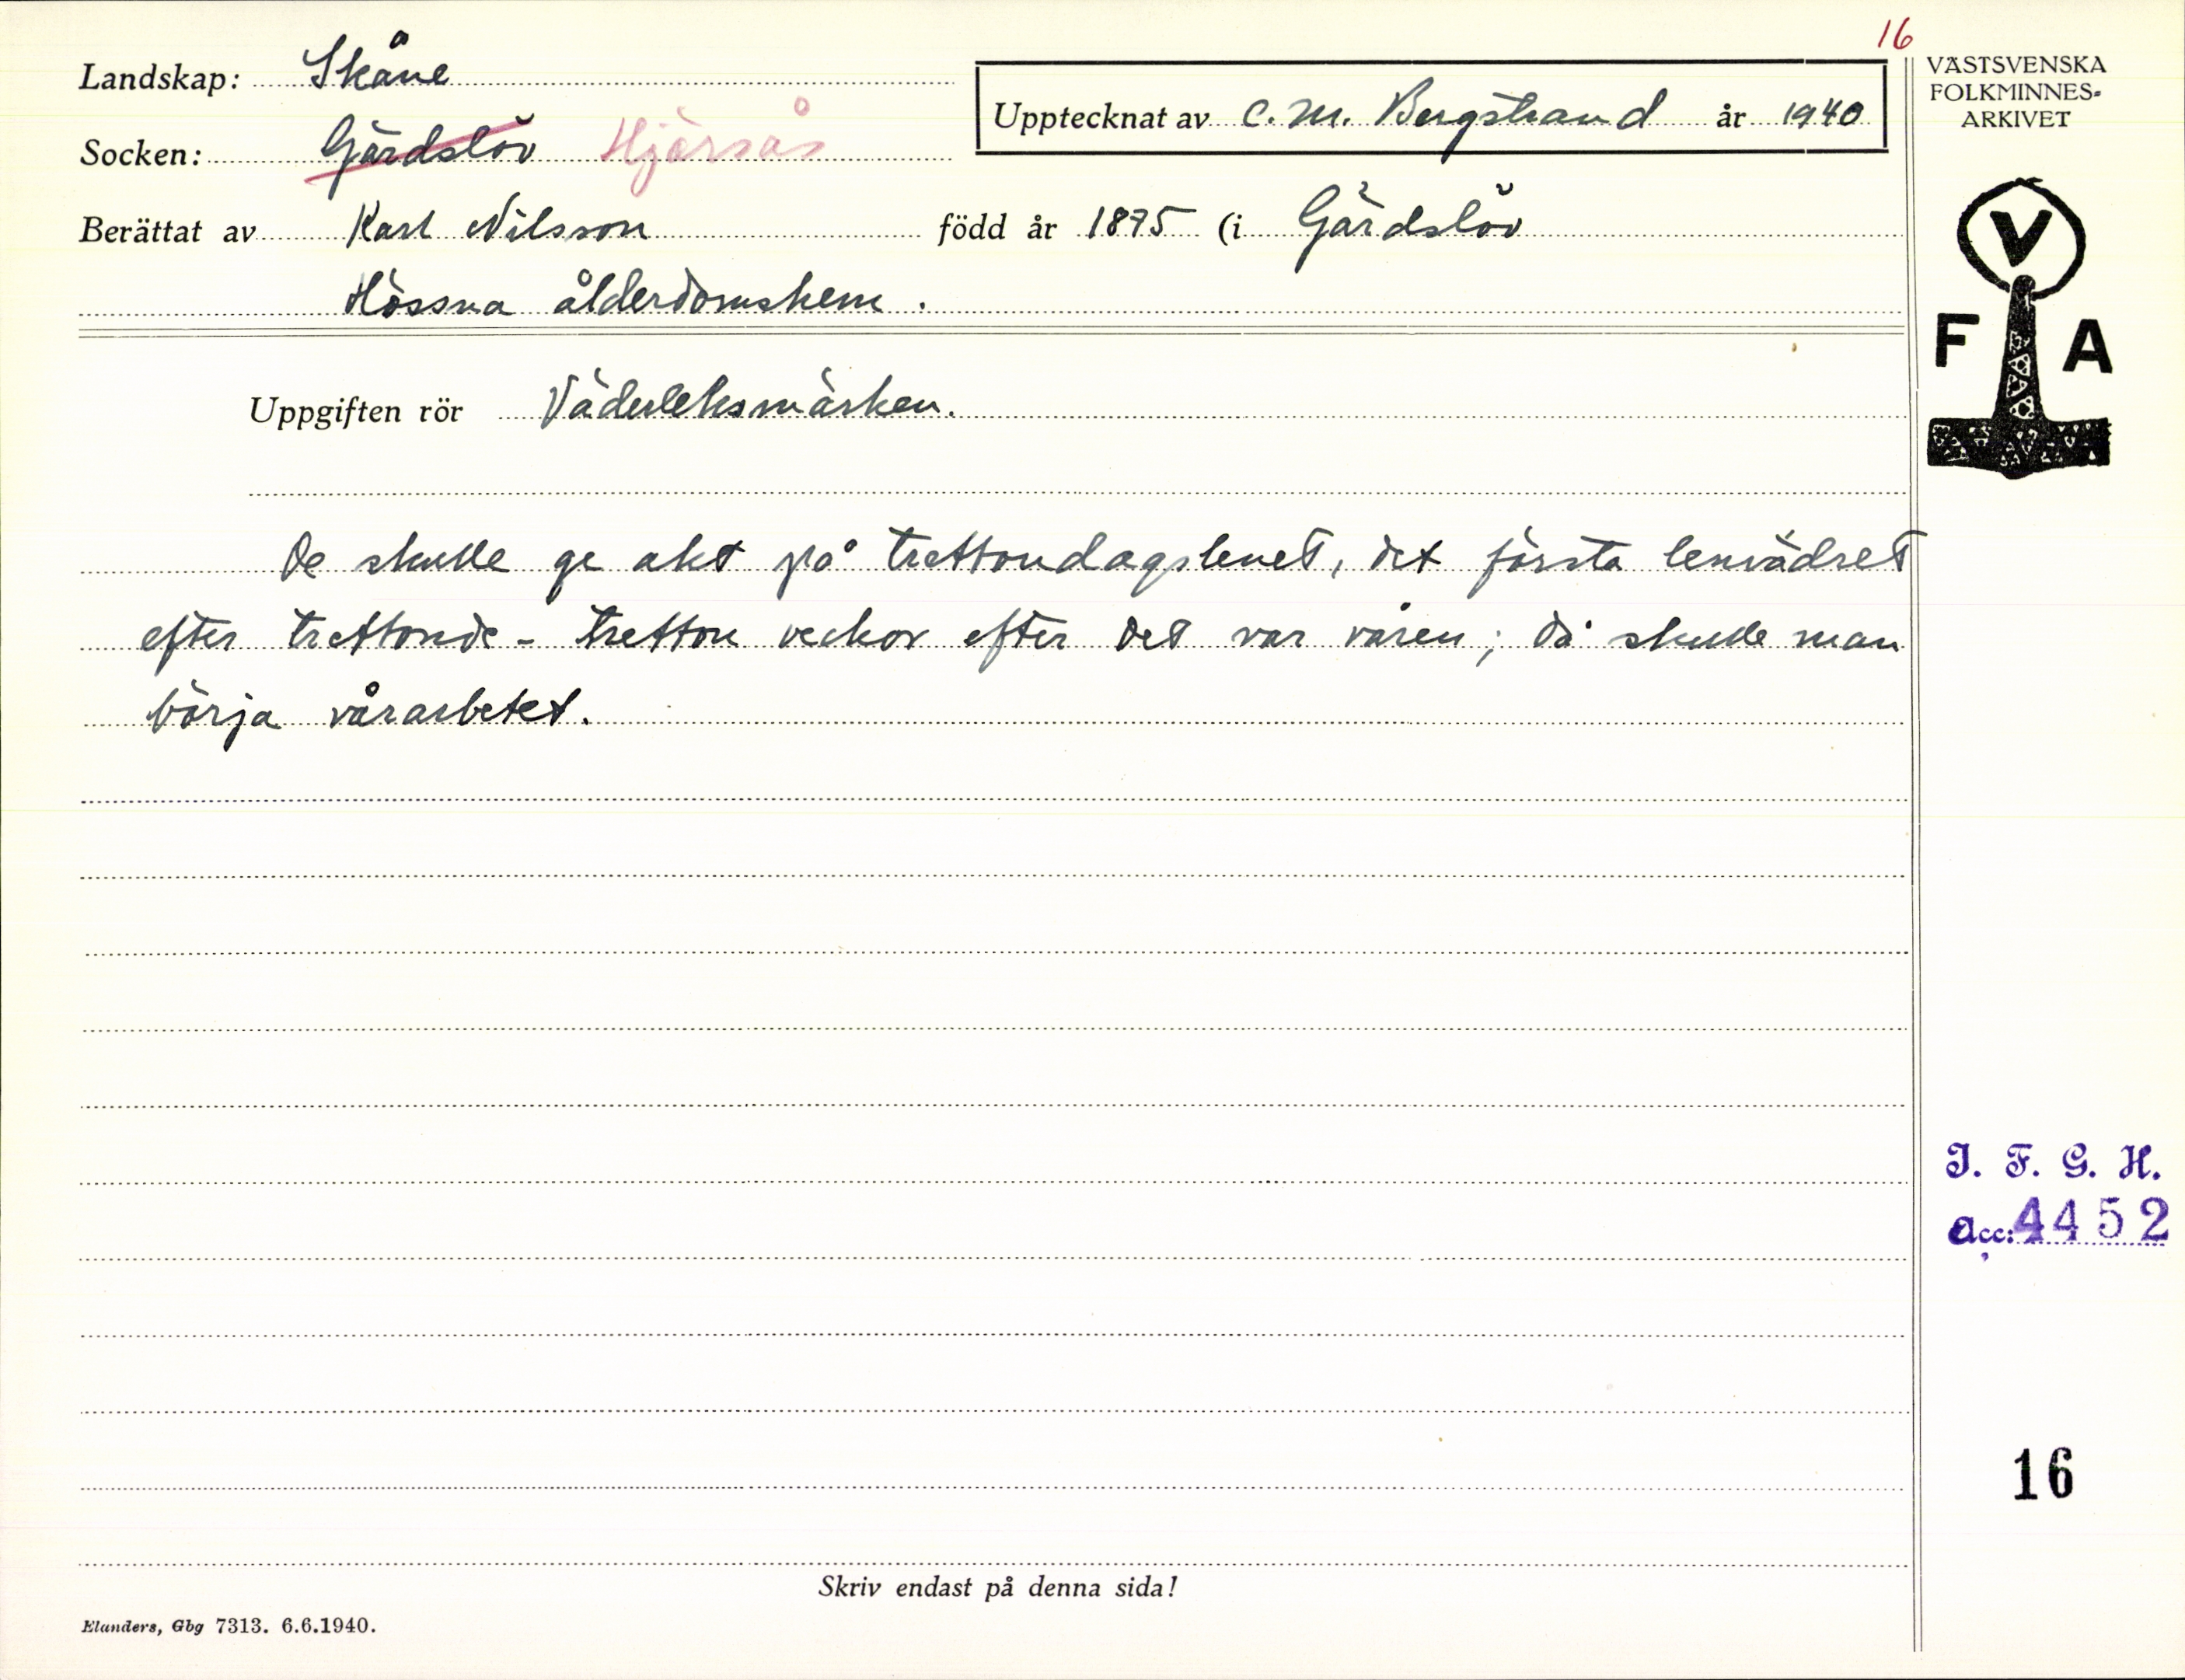 16
Landskap: Skåne
Upptecknat av C. M. Bergstrand år 1940
Socken: Gärdslöv Hjärsås
Berättat av Karl Nilsson född år 1875 (i Gärdslöv
Hössna ålderdomshem.
Uppgiften rör Väderleksmärken.
De skulle ge akt på trettondagslenet, det första lenvädret
efter trettonde - tretton veckor efter det var våren; då skulle man
börja vårarbetet.
VÄSTSVENSKA
FOLKMINNES-
ARKIVET
V
F A
I. F. G. H.
acc: 4452
16
Skriv endast på denna sida!
Elanders, Gbg 7313. 6.6.1940.